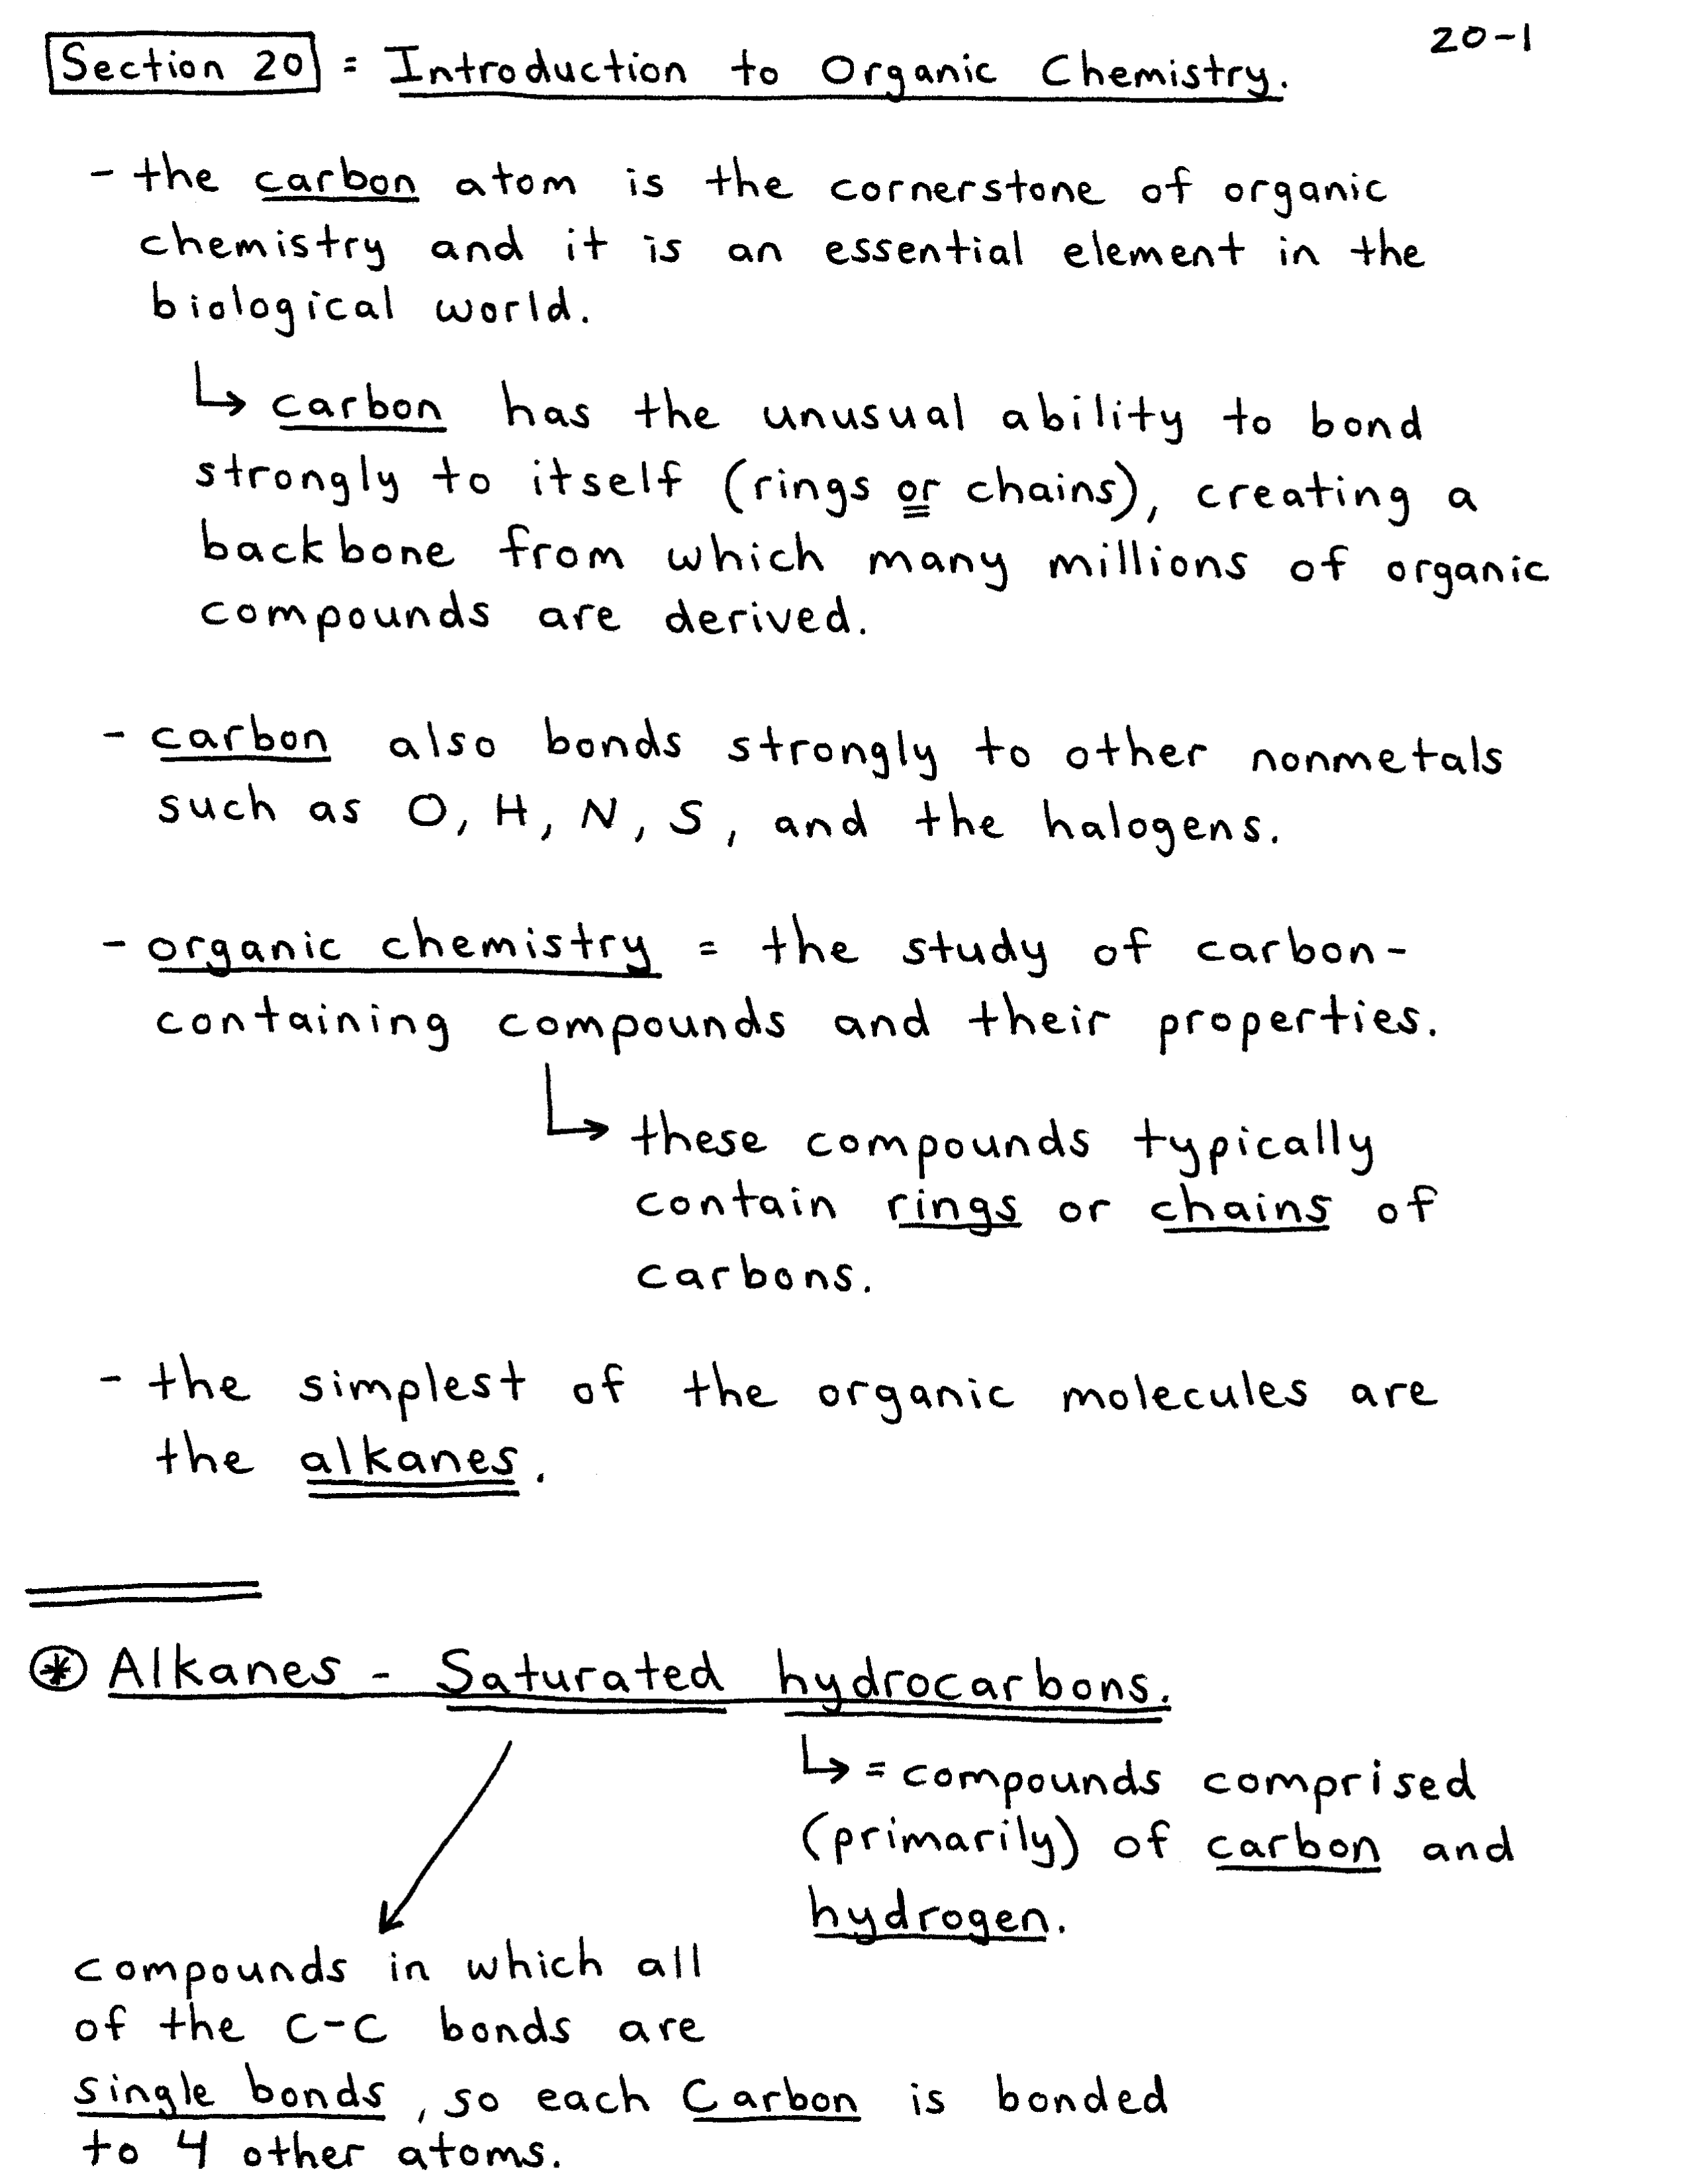 20-1
Section 20 = Introduction to Organic Chemistry.
- the carbon atom is the cornerstone of organic
chemistry and it is an essential element in the
biological world.
↳ carbon has the unusual ability to bond
strongly to itself (rings or chains), creating a
backbone from which many millions of organic
compounds are derived.
- carbon also bonds strongly to other nonmetals
such as O, H, N, S, and the halogens.
- organic chemistry = the study of carbon-
containing compounds and their properties.
↳ these compounds typically
contain rings or chains of
carbons.
- the simplest of the organic molecules are
the alkanes.
⊛ Alkanes - Saturated hydrocarbons.
↳ = compounds comprised
(primarily) of carbon and
hydrogen.
compounds in which all
of the C-C bonds are
single bonds, so each Carbon is bonded
to 4 other atoms.